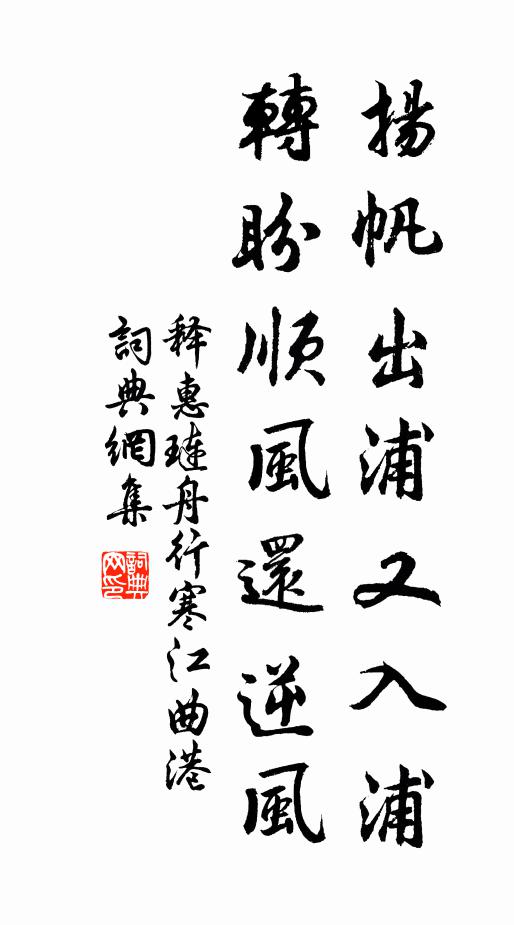 揚帆出浦又入浦
轉盼順風還逆風
释惠璉舟行寒江曲港
詞典網集
詞典网印